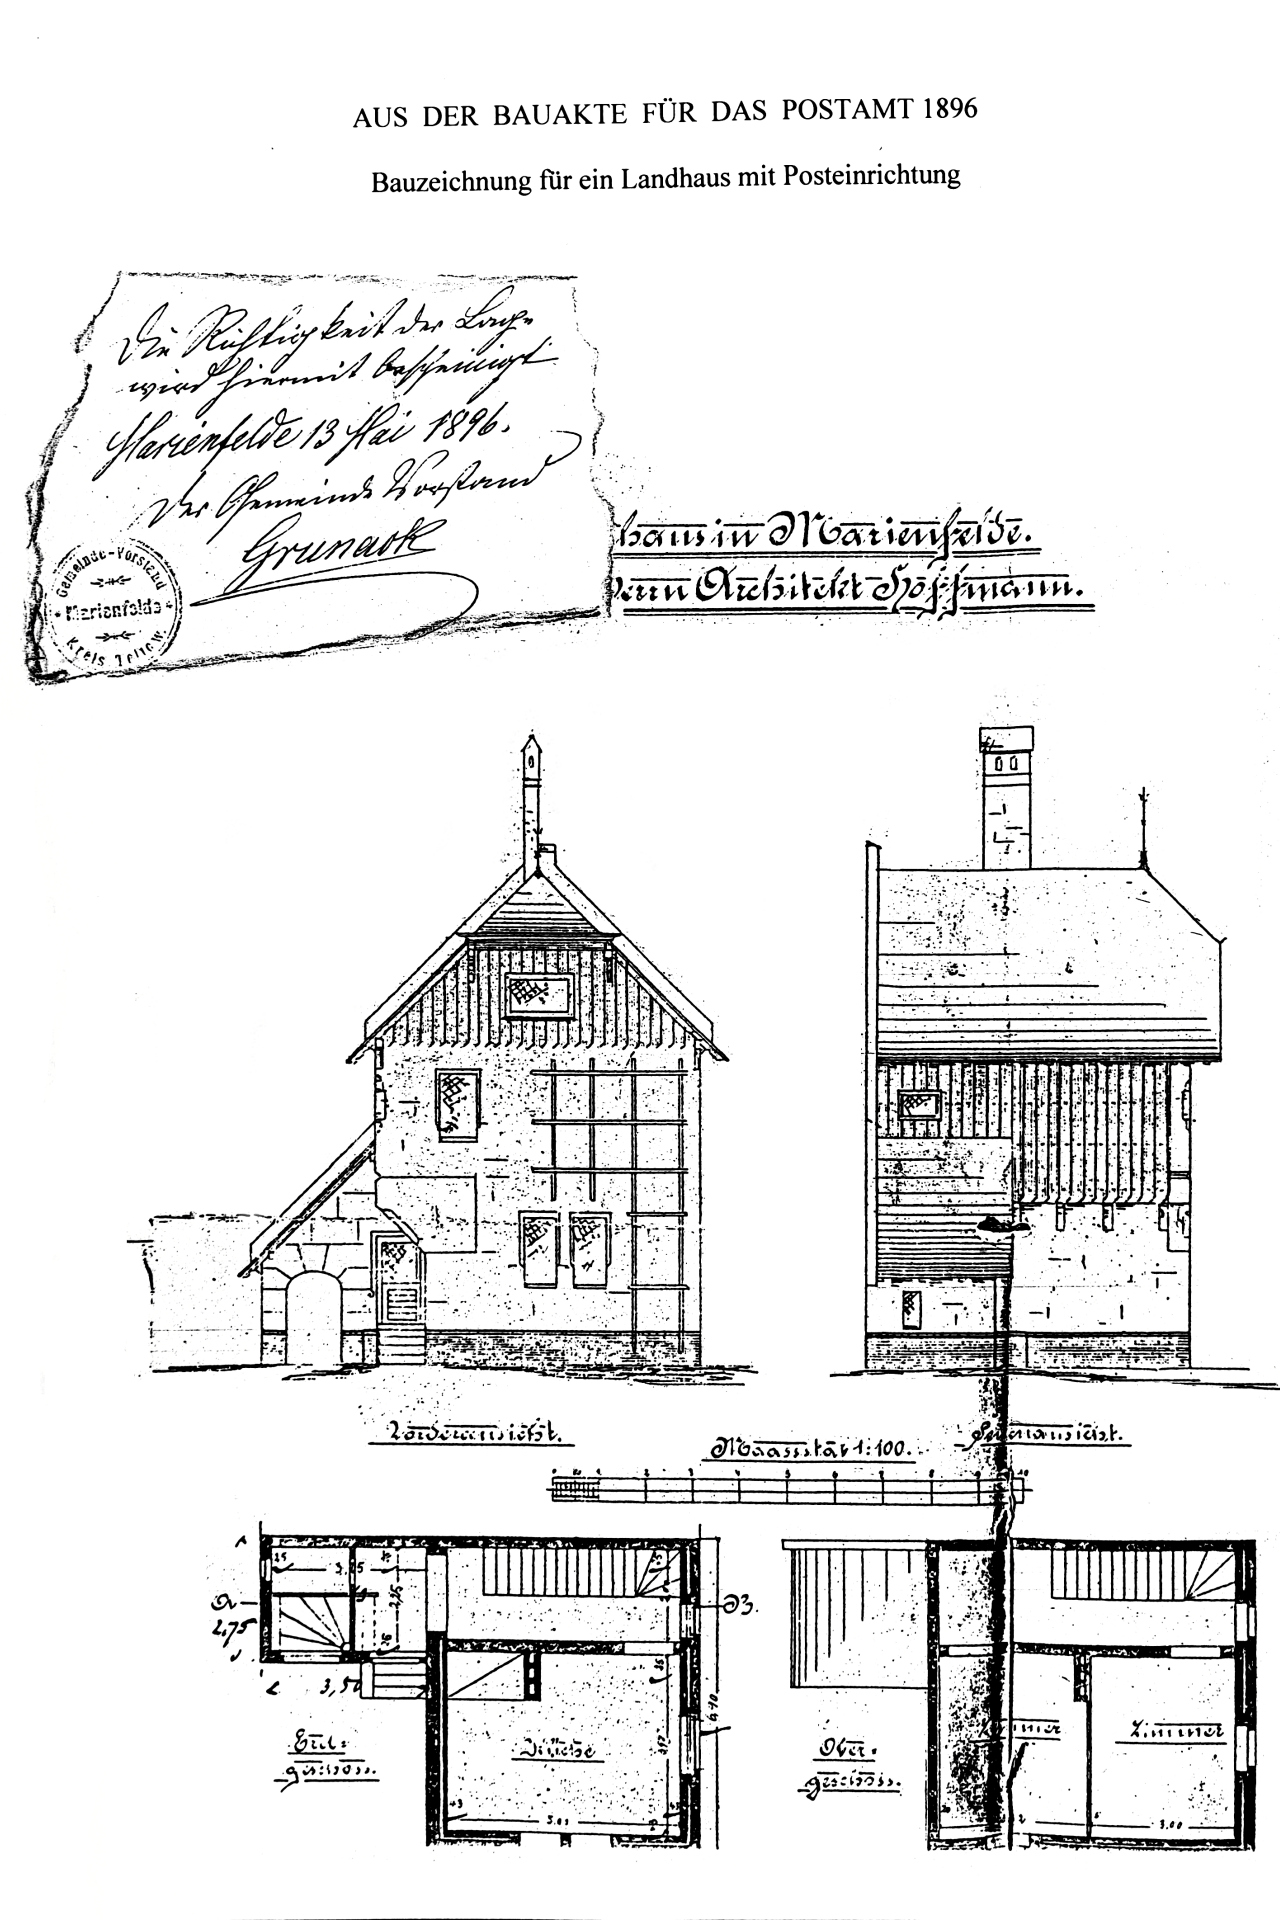 AUS DER BAUAKTE FÜR DAS POSTAMT 1896
Bauzeichnung für ein Landhaus mit Posteinrichtung
Die Richtigkeit der Lage
wird hiermit bescheinigt
Marienfelde 13 Mai 1896.
Der Gemeinde Vorstand
Grunack
Gemeinde-Vorstand
Marienfelde
Kreis Teltow
haus in Marienfelde.
Herrn Architekt Hoffmann.
Vorderansicht.
Maasstab 1:100.
Seitenansicht.
2 3 4 5 6 7 8 9 10
25
3,25
2,25
B.
2,75
3,50
Erd-
geschoss.
Küche
6,10
Ober-
geschoss.
Zimmer
Zimmer
3.00